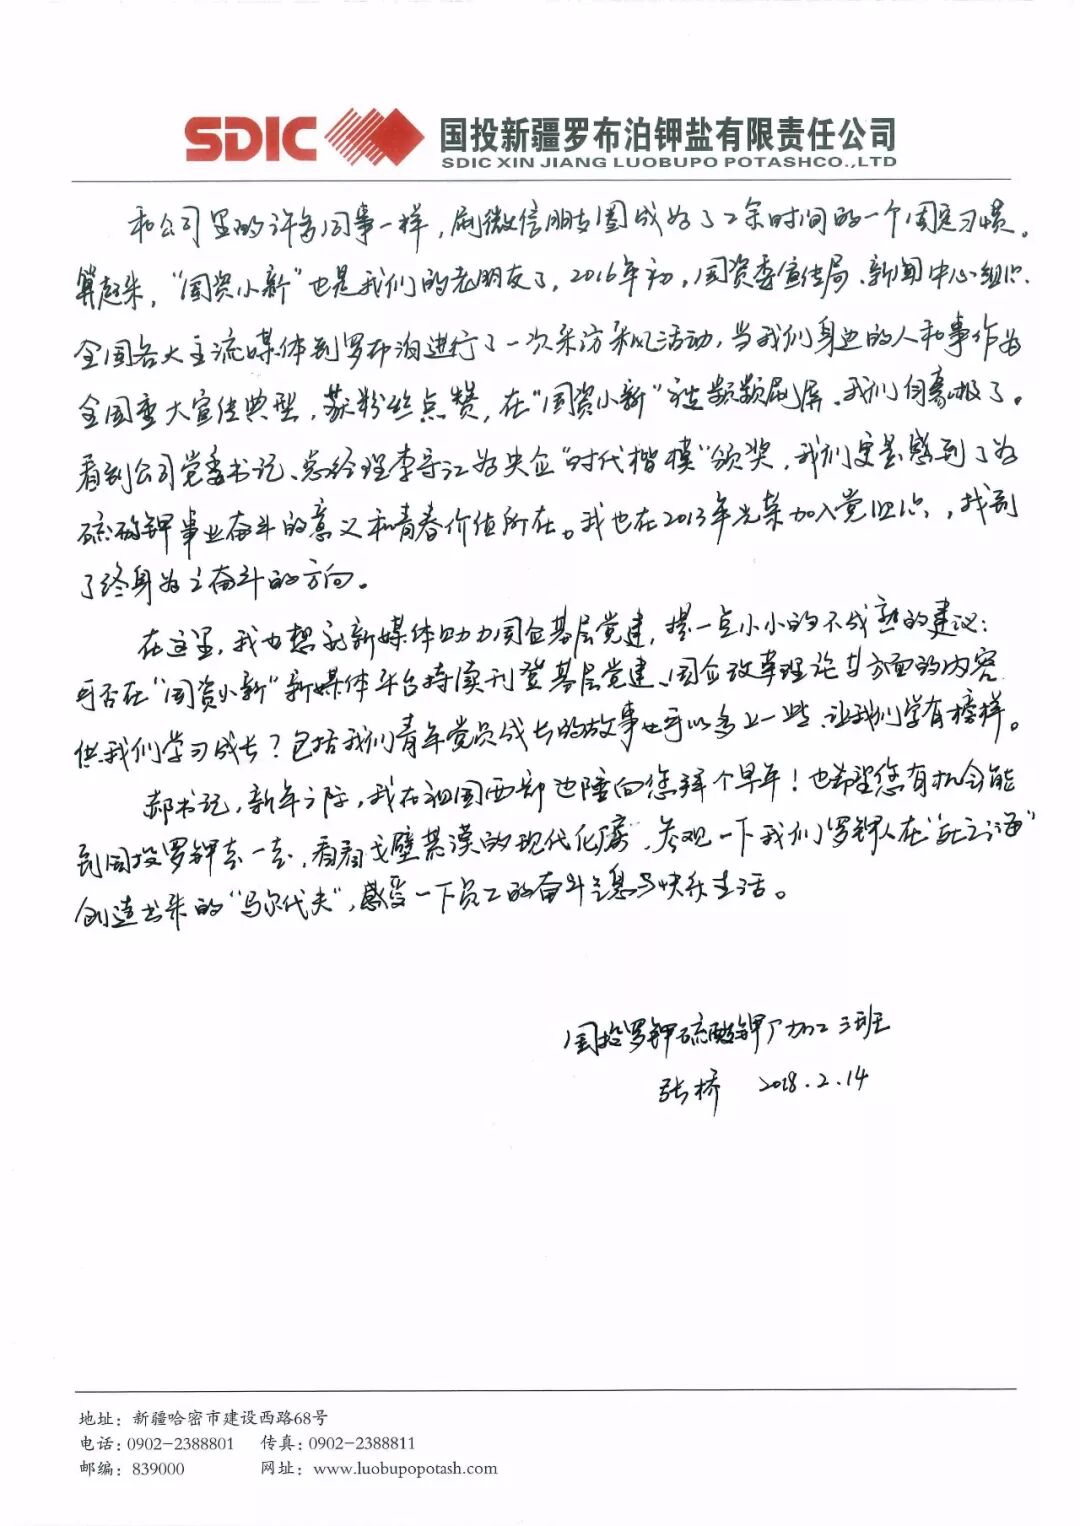 SDIC 国投新疆罗布泊钾盐有限责任公司
SDIC XIN JIANG LUOBUPO POTASHCO.,LTD
和公司里的许多同事一样，刷微信朋友圈成为了工余时间的一个固定习惯。
算起来，“国资小新”也是我们的老朋友了，2016年初，国资委宣传局、新闻中心组织
全国各大主流媒体到罗布泊进行了一次采访采风活动，当我们身边的人和事作为
全国重大宣传典型，获粉丝点赞，在“国资小新”被频频刷屏，我们自豪极了。
看到公司党委书记、总经理李守江为央企“时代楷模”颁奖，我们更是感到了为
硫酸钾事业奋斗的意义和青春价值所在。我也在2013年光荣加入党组织，找到
了终身为之奋斗的方向。
在这里，我也想就新媒体助力国企基层党建，提一点小小的不成熟的建议：
可否在“国资小新”新媒体平台持续刊登基层党建、国企改革理论等方面的内容
供我们学习成长？包括我们青年党员成长的故事也可以多上一些，让我们学有榜样。
郝书记，新年之际，我在祖国西部边陲向您拜个早年！也希望您有机会能
到国投罗钾走一走，看看戈壁荒漠的现代化厂房，参观一下我们罗钾人在“死亡之海”
创造出来的“马尔代夫”，感受一下员工的奋斗气息与快乐生活。
国投罗钾硫酸钾厂加工三班
张桥 2018.2.14
地址：新疆哈密市建设西路68号
电话：0902-2388801 传真：0902-2388811
邮编：839000 网址：www.luobupopotash.com